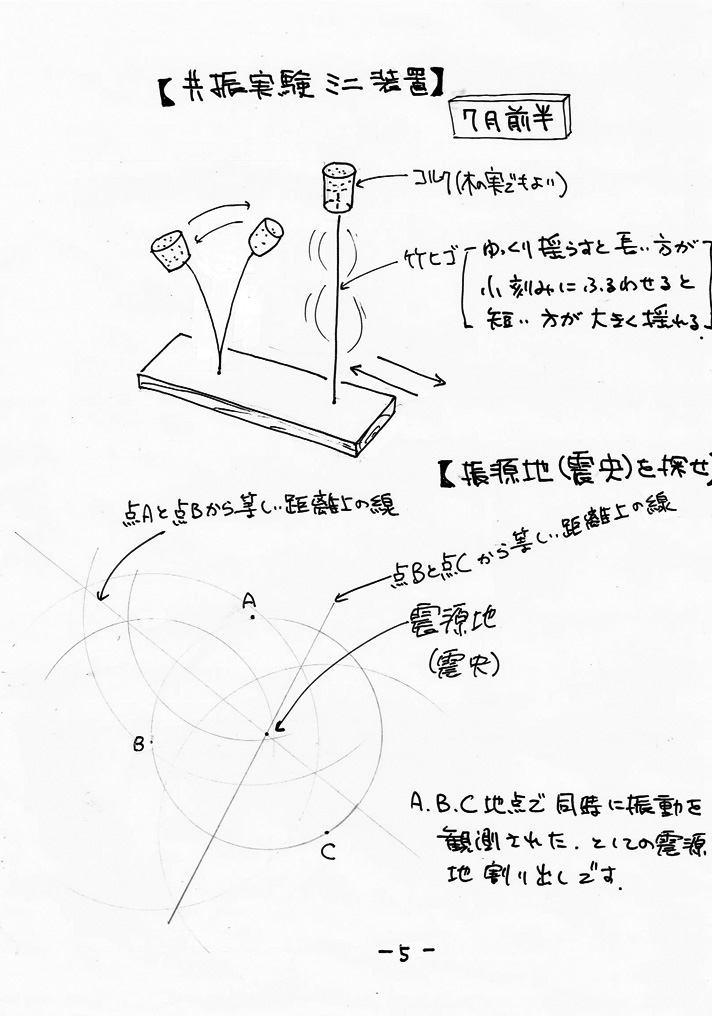 【共振実験ミニ装置】
7月前半
コルク(木の実でもよい)
竹ヒゴ
ゆっくり揺らすと長い方が
小刻みにふるわせると
短い方が大きく揺れる.
【振源地(震央)を探せ】
点Aと点Bから等しい距離上の線
点Bと点Cから等しい距離上の線
震源地
(震央)
A
B
C
A.B.C地点で同時に振動を
観測された.としての震源
地割り出しです.
-5-